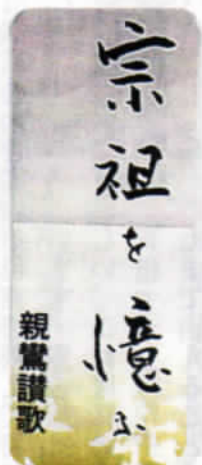 宗祖を憶ふ
親鸞讃歌